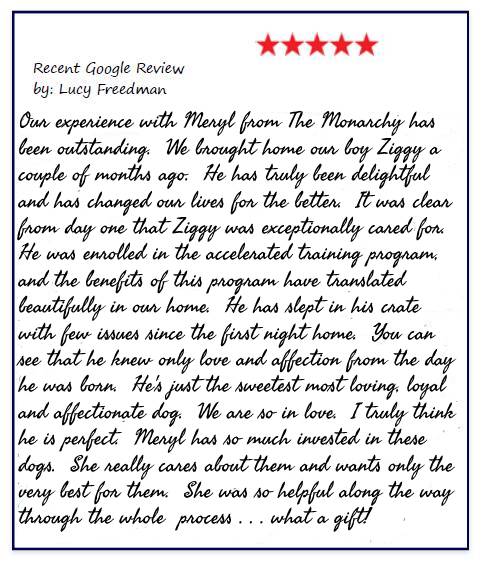 Recent Google Review
by: Lucy Freedman
Our experience with Meryl from The Monarchy has
been outstanding. We brought home our boy Ziggy a
couple of months ago. He has truly been delightful
and has changed our lives for the better. It was clear
from day one that Ziggy was exceptionally cared for.
He was enrolled in the accelerated training program,
and the benefits of this program have translated
beautifully in our home. He has slept in his crate
with few issues since the first night home. You can
see that he knew only love and affection from the day
he was born. He's just the sweetest most loving, loyal
and affectionate dog. We are so in love. I truly think
he is perfect. Meryl has so much invested in these
dogs. She really cares about them and wants only the
very best for them. She was so helpful along the way
through the whole process . . . what a gift!